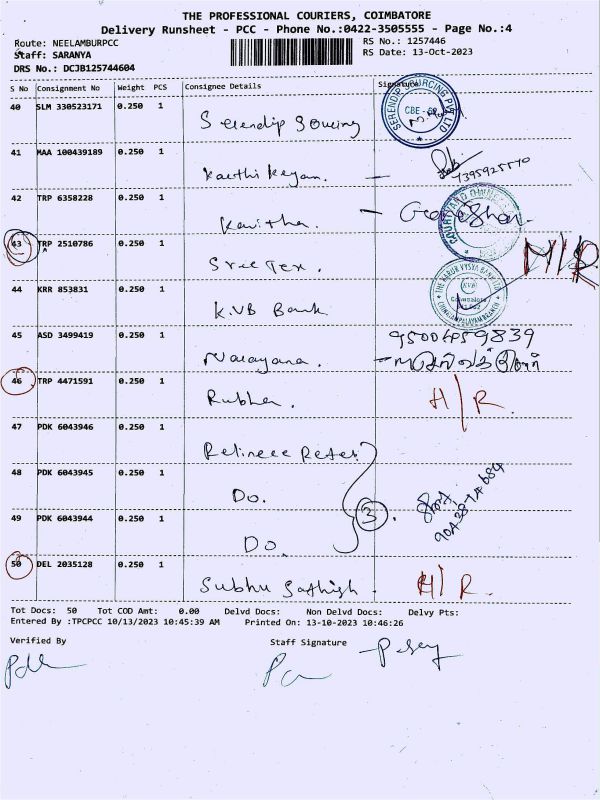 THE PROFESSIONAL COURIERS, COIMBATORE
Delivery Runsheet - PCC - Phone No.:0422-3505555 - Page No.:4
Route: NEELAMBURPCC
RS No.: 1257446
Staff: SARANYA
RS Date: 13-Oct-2023
DRS No.: DCJB125744604
S No Consignment No Weight PCS Consignee Details Signature
40 SLM 330523171 0.250 1 Serendip Soucing
SERENDIP SOURCING PVT LTD
CBE
41 MAA 100439189 0.250 1 Karthikeyan. -
7395925570
42 TRP 6358228 0.250 1 Kavitha. -
43 TRP 2510786 0.250 1 Sree Tex. H/R
44 KRR 853831 0.250 1 K.VB Bank
THE KARUR VYSYA BANK LTD
KVB
Coimbatore
45 ASD 3499419 0.250 1 Narayana.
46 TRP 4471591 0.250 1 Rubha. H/R.
47 PDK 6043946 0.250 1
48 PDK 6043945 0.250 1 Do.
3.
49 PDK 6043944 0.250 1 Do.
50 DEL 2035128 0.250 1 Subhu Sathish. H/R.
Tot Docs: 50 Tot COD Amt: 0.00 Delvd Docs: Non Delvd Docs: Delvy Pts:
Entered By :TPCPCC 10/13/2023 10:45:39 AM Printed On: 13-10-2023 10:46:26
Verified By Staff Signature